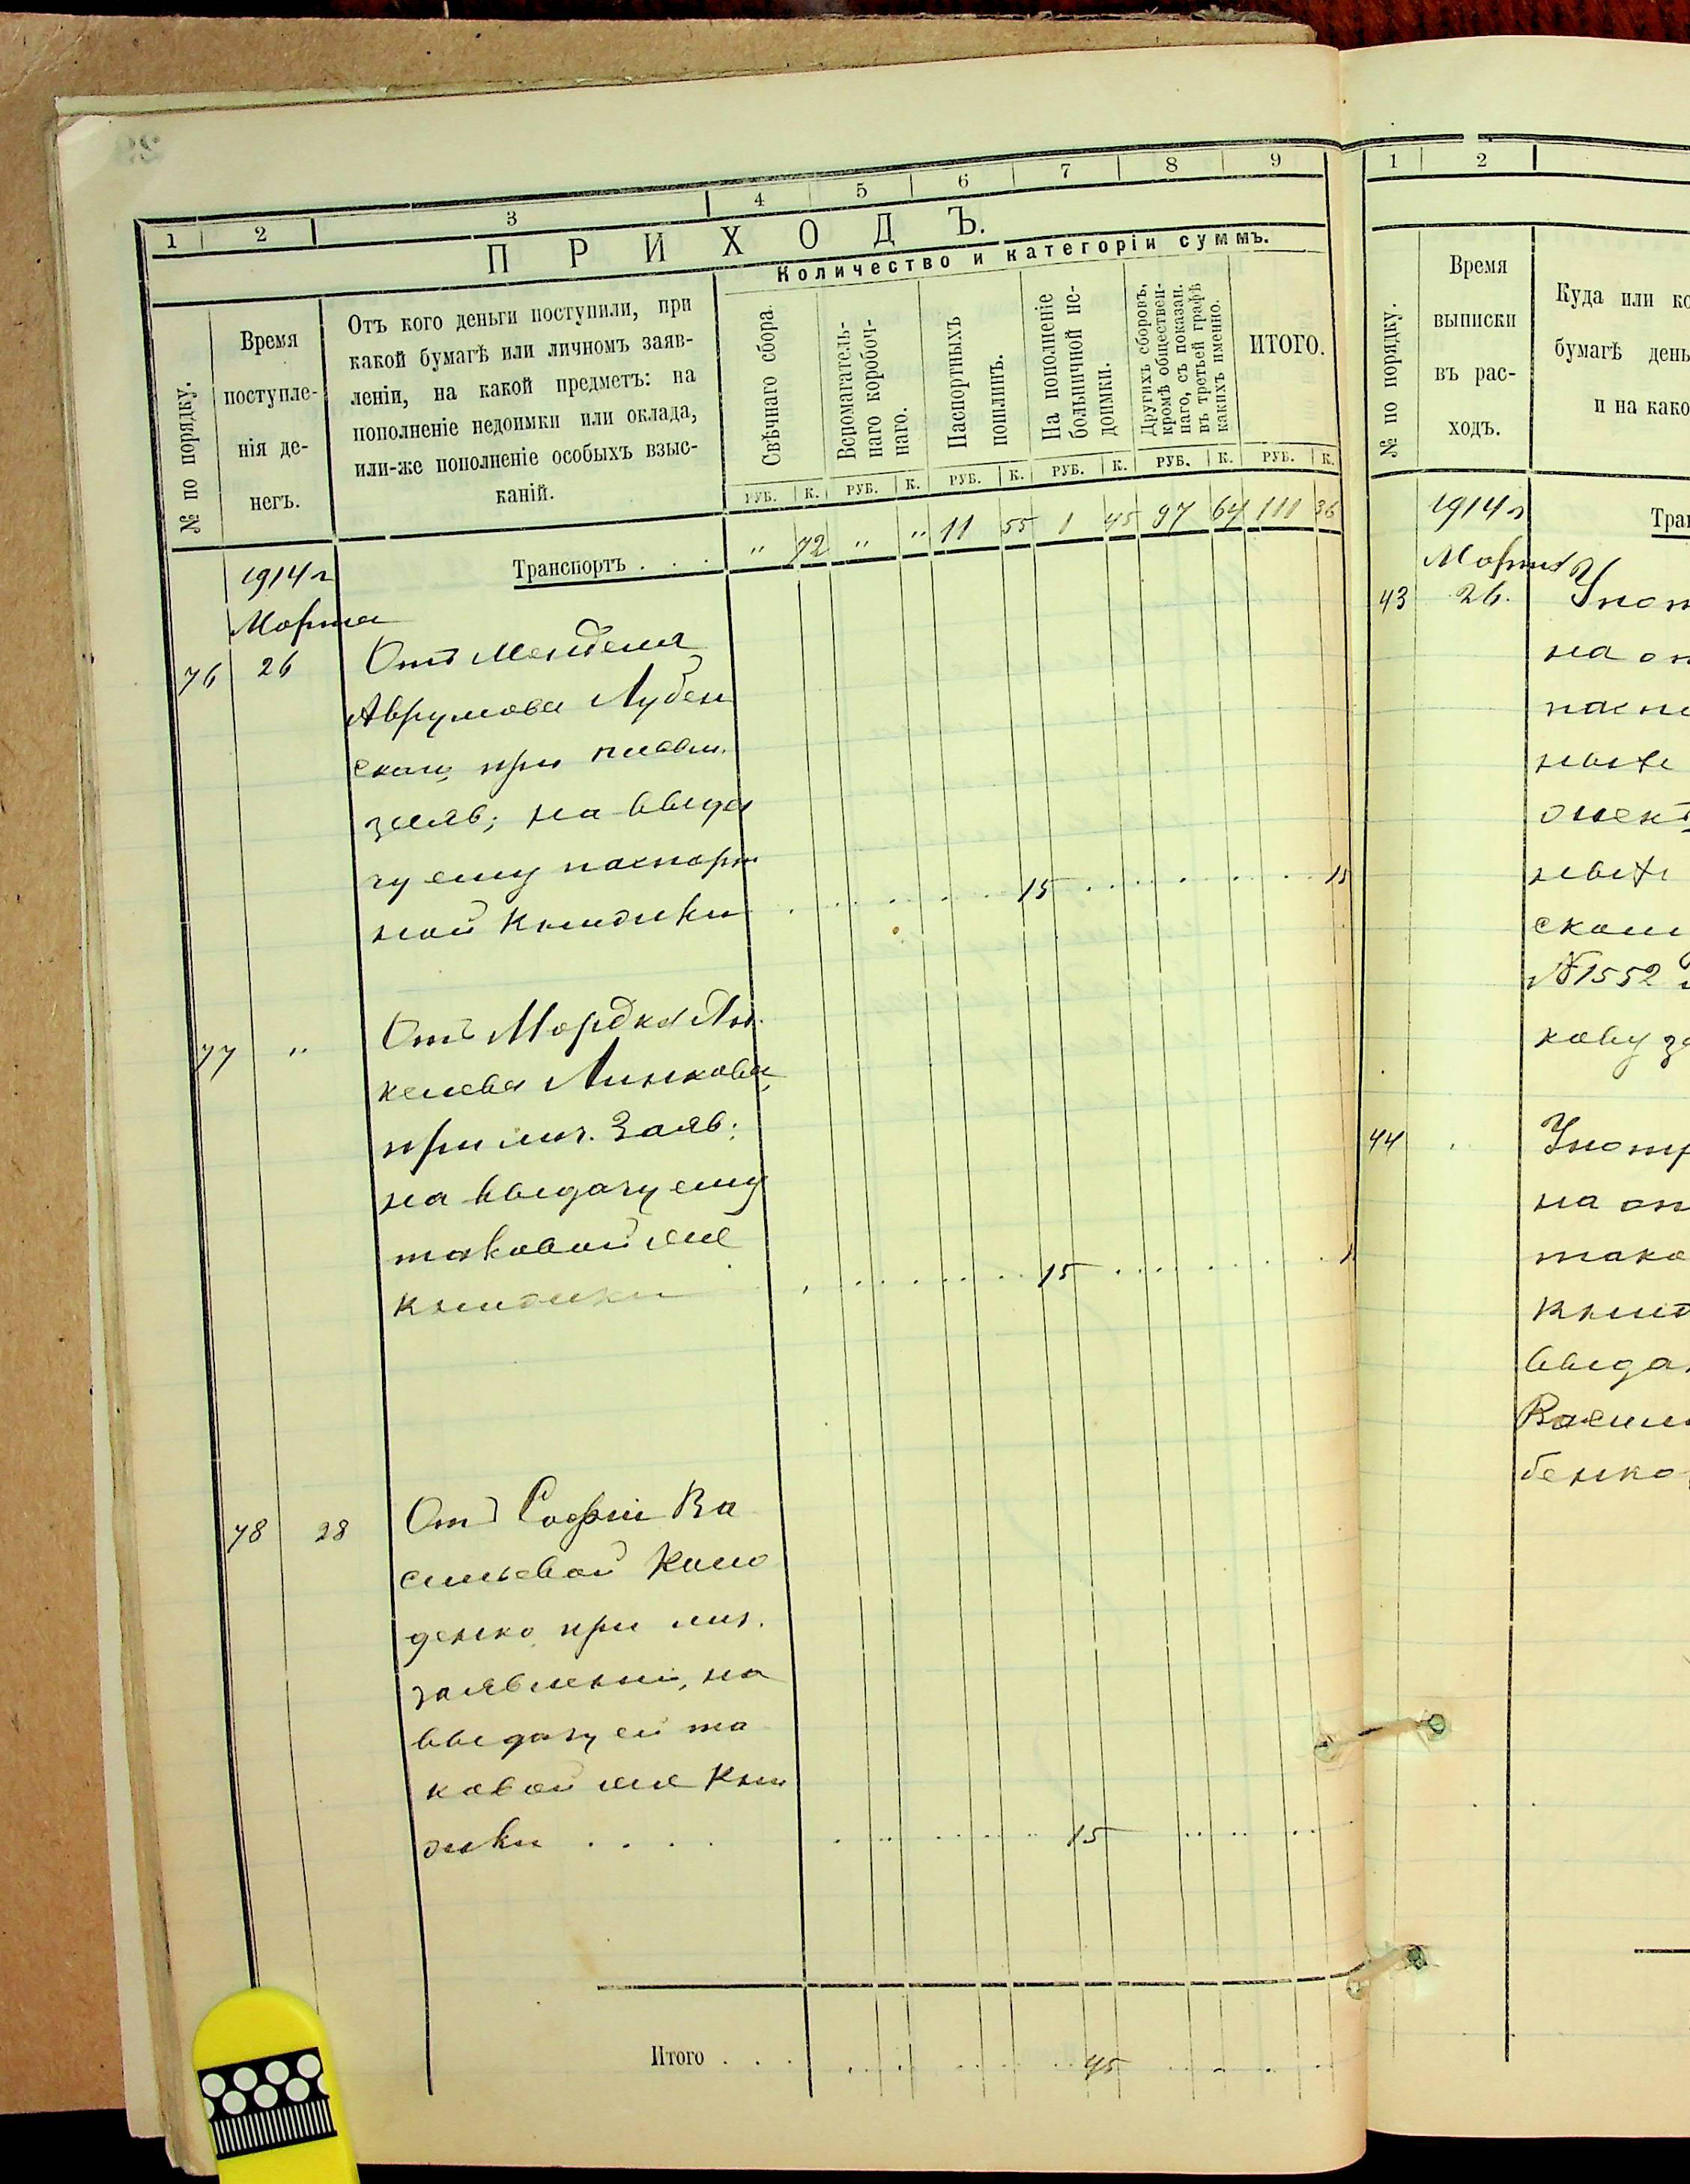 1 2 3 4 5 6 7 8 9
ПРИХОДЪ.
№ по порядку.
Время
поступле-
нія де-
негъ.
Отъ кого деньги поступили, при
какой бумагѣ или личномъ заяв-
леніи, на какой предметъ: на
пополненіе недоимки или оклада,
или-же пополненіе особыхъ взыс-
каній.
Количество и категоріи суммъ.
Свѣчнаго сбора.
Вспомагатель-
наго коробоч-
наго.
Паспортныхъ
пошлинъ.
На пополненіе
больничной не-
доимки.
Другихъ сборовъ,
кромѣ обществен-
наго, съ показан.
въ третьей графѣ
какихъ именно.
ИТОГО.
РУБ. К. РУБ. К. РУБ. К. РУБ. К. РУБ. К. РУБ. К.
Транспортъ . . . " 72 " " 11 55 1 45 97 64 111 36
1914 г
Марта
76 26 Отъ Менделя
Аврумова Лубен
скаго, при
заяв; на выда
чу ему паспорт
ной книжки 15 15
77 " Отъ Мордка Ян
келева Линкова,
при лич. заяв;
на выдачу ему
таковой же
книжки 15
78 28 Отъ Софіи Ва
сильевой Коло
денко при лич.
заявленіи, на
выдачу ей та
ковой же кни
жки . . . . 15
Итого . . . 45
1 2
№ по порядку.
Время
выписки
въ рас-
ходъ.
Куда или ко
бумагѣ день
и на како
1914 г
Тран
Марта
43 26.
на
ною
скаго
№ 1552
кову
44
на
тако
книж
выда
Васил
бенко